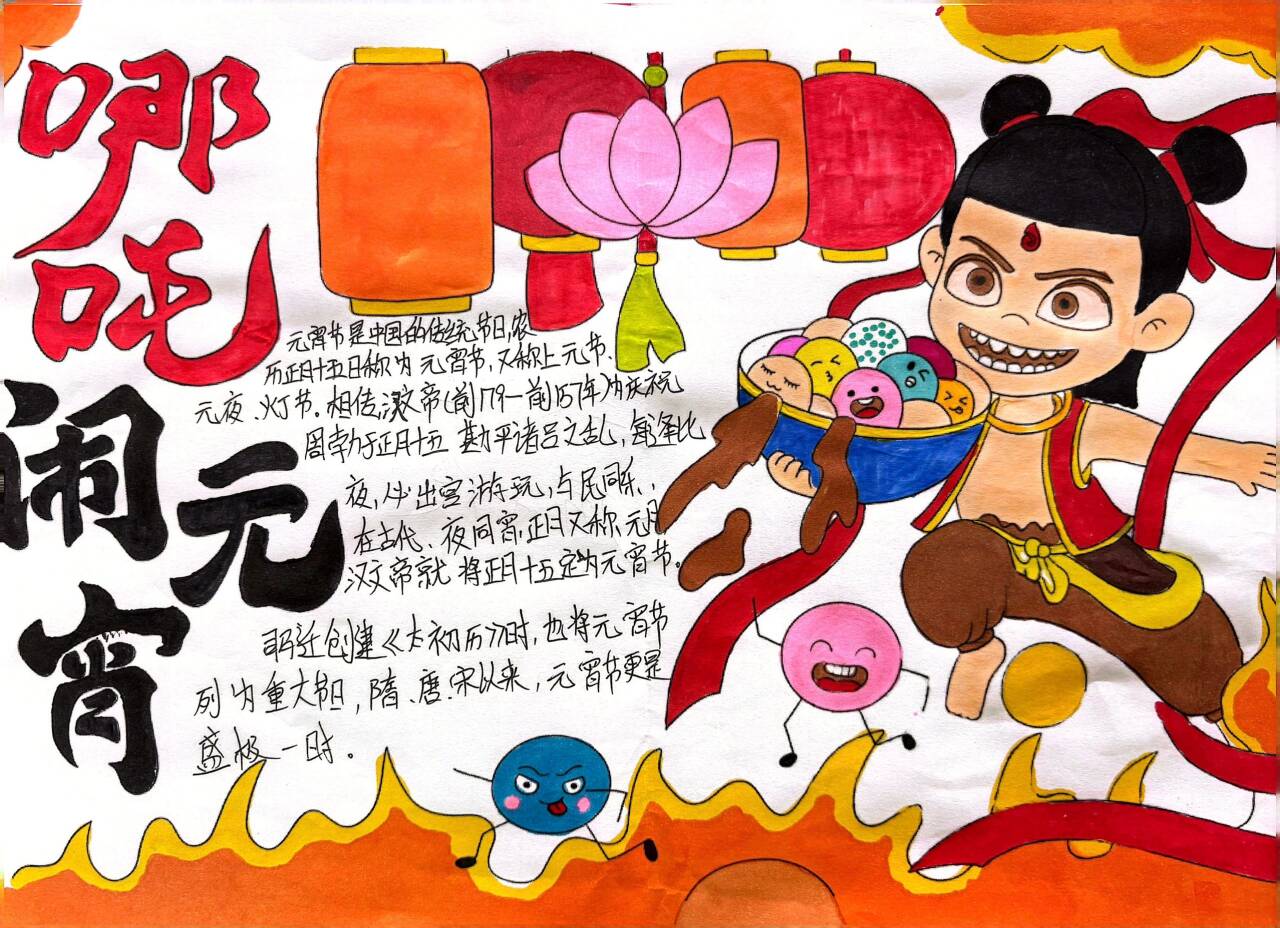 哪吒
闹元宵
元宵节是中国的传统节日,农
历正月十五日称为元宵节,又称上元节、
元夜、灯节。相传,汉文帝(前179一前157年)为庆祝
周勃于正月十五勘平诸吕之乱,每逢此
夜,必出宫游玩,与民同乐,
在古代、夜同宵,正月又称元月
汉文帝就将正月十五定为元宵节。
司马迁创建《太初历》时,也将元宵节
列为重大节日,隋、唐、宋以来,元宵节更是
盛极一时。